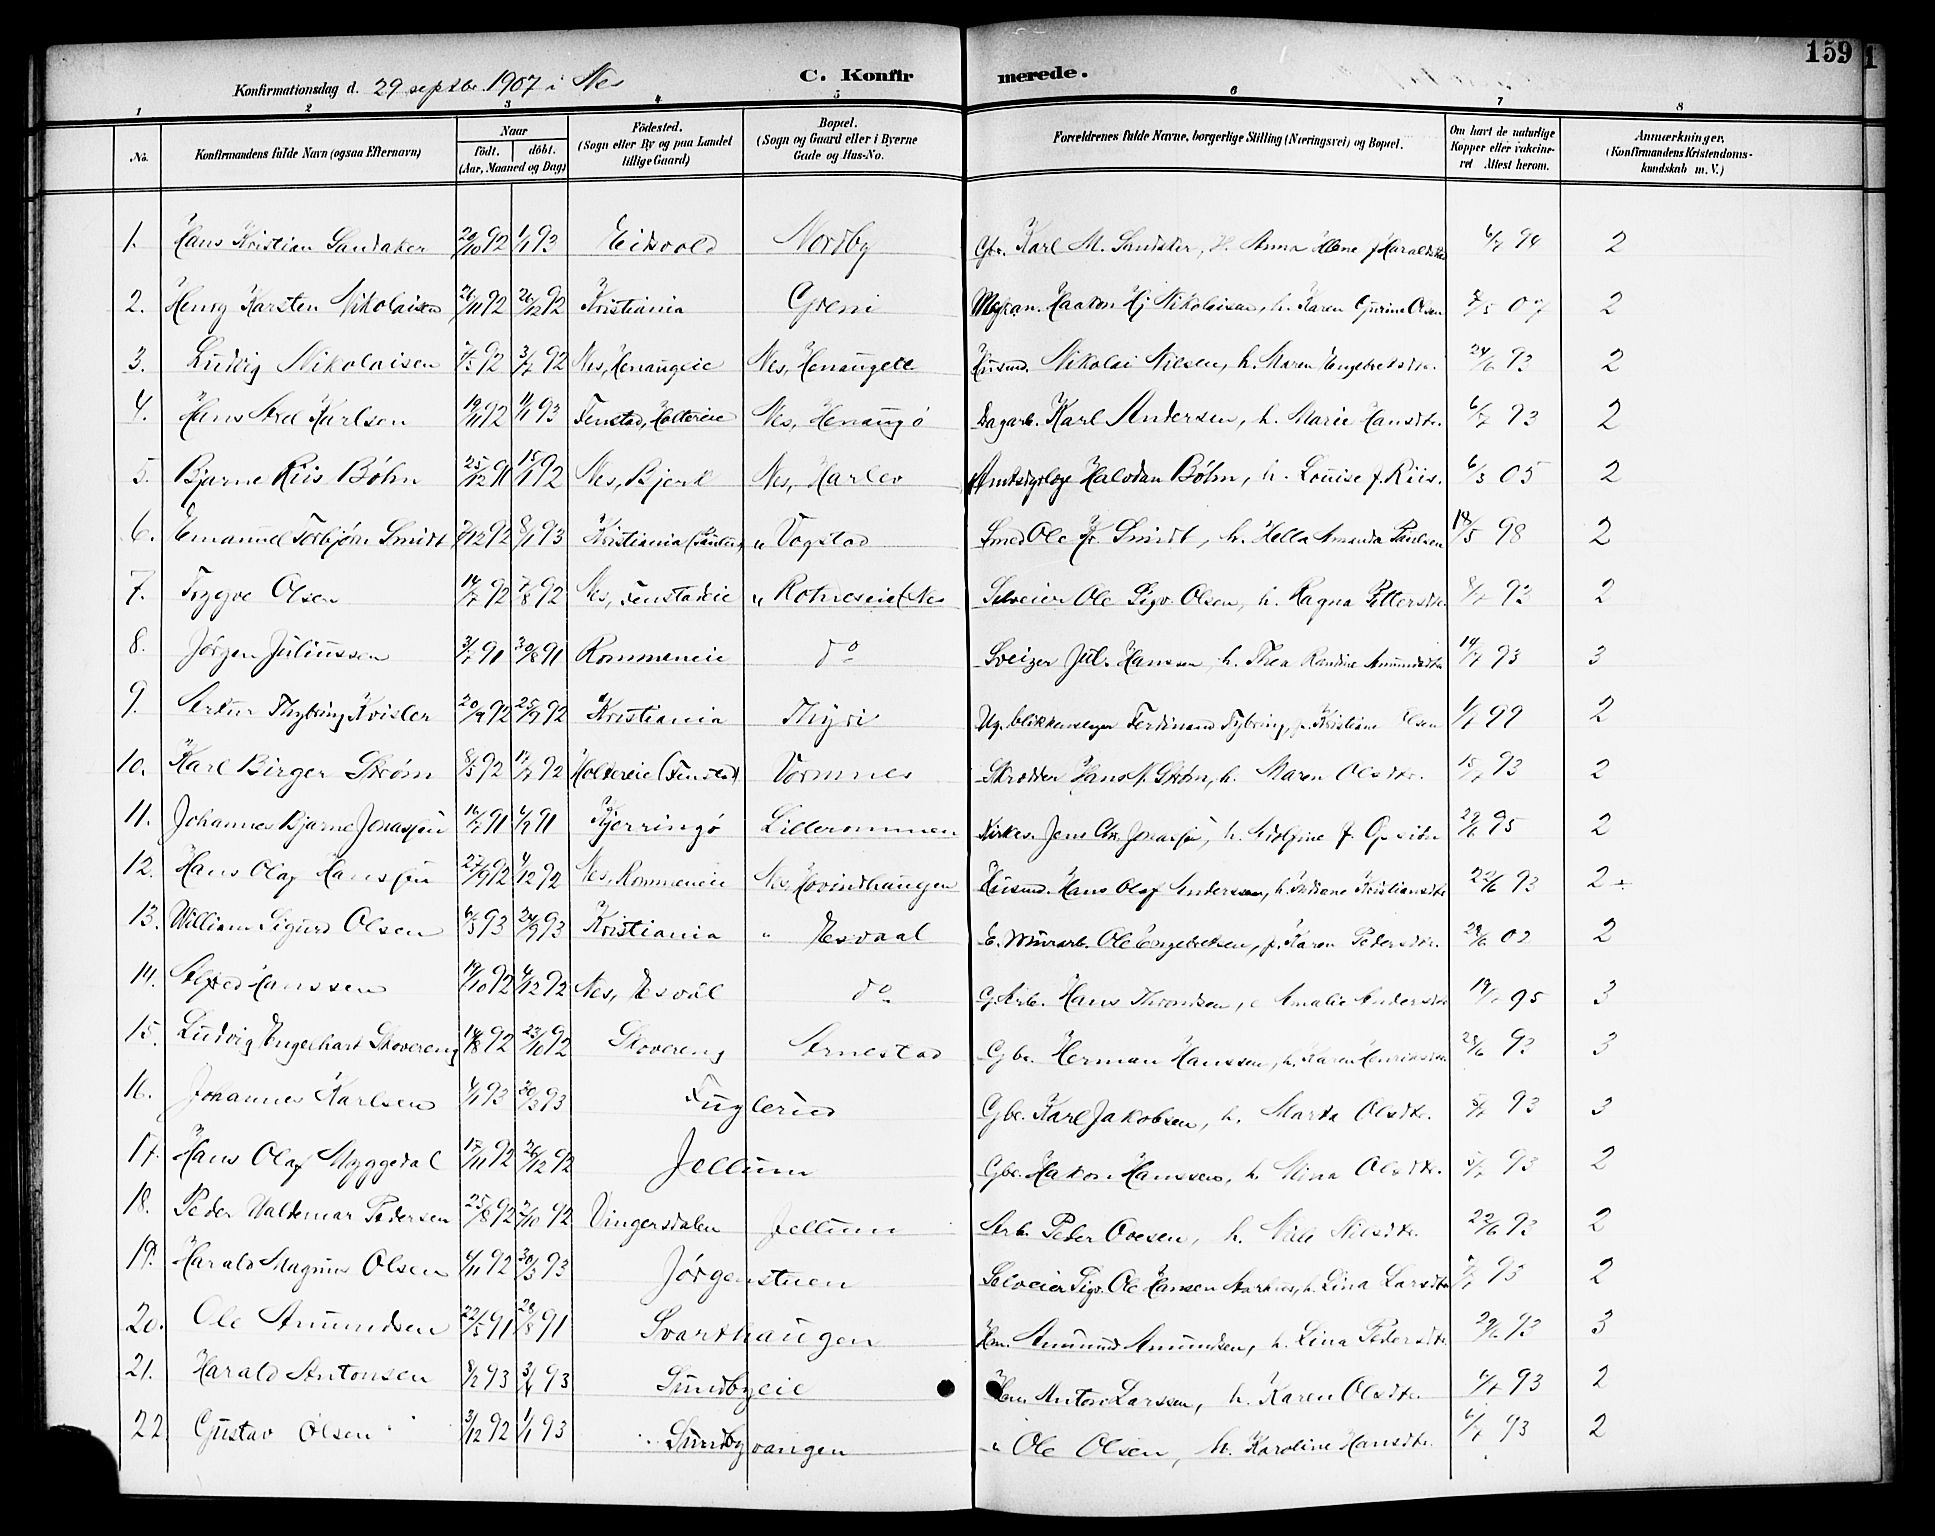 159
Konfirmationsdag d. 29 septbr. 1907 i Nes C. Konfirmerede.
1 2 3 4 5 6 7 8
No. Konfirmandens fulde Navn (ogsaa Efternavn) Naar födt. döbt. (Aar, Maaned og Dag) Födested. (Sogn eller By og paa Landet tillige Gaard) Bopæl. (Sogn og Gaard eller i Byerne Gade og Hus-No. Forældrenes fulde Navne, borgerlige Stilling (Næringsvei) og Bopæl. Om havt de naturlige Kopper eller vakcineret Attest herom. Anmærkninger. (Konfirmandens Kristendomskundskab m. V.)
1. Hans Kristian Sandaker 20/10 92 1/1 93 Eidsvold Nordby Gbr. Karl M. Sandaker, H. Anna Elene f Haraldsen 6/7 94 2
2. Henry Karsten Nikolaisen 26/11 92 26/12 92 Kristiania Greni Haakon Hj Nikolaisen, h. Karen Gurine Olsen 07 2
3. Ludvig Nikolaisen 92 3/7 92 Nes, Henaugeie Nes, Henaugeie Husmd. Nikolai Nilsen, h. Maren Engebretsdtr. 24/6 93 2
4. Hans Axel Karlsen 19/11 92 1/1 93 Fenstad, Holtereie Nes, Henaug ø Dagarb. Karl Andersen, h. Marie Hansdtr. 6/7 93 2
5. Bjarne Riis Bøhn 25/12 91 15/1 92 Nes, Bjerk Nes, Harlev Halvdan Bøhn, h. Louise f. Riis. 6/3 05 2
6. Emanuel Torbjørn Smidt 92 8/1 93 Kristiania „ Vogstad Smed Ole Smidt, h. Hella Amanda Paulsen 18/5 98 2
7. Trygve Olsen 14/7 92 7/8 92 Nes, Fenstadeie „ Rohneseie (Nes Selveier Ole Sigv. Olsen, h. Ragna Pettersdtr. 8/7 93 2
8. Jørgen Juliussen 3/7 91 30/8 91 Rommeneie do Sveizer Jul. Hanssen, h. Thea Randine Amundsdtr 14/7 93 3
9. Artur Thybring Kvisler 20/9 92 25/9 92 Kristiania Thyri Ug. blikkenslager Ferdinand Tybring, p. Kristiane Olsen 99 2
10. Karl Birger Strøm 8/5 92 17/7 92 Holtereie (Fenstad) Vormnes Skrædder Hans Strøm, h. Maren Olsdtr. 15/7 93 2
11. Johannes Bjarne Jonassen 16/7 91 6/9 91 Kjerringø Lillerommen Kirkes. Jens Chr. Jonassen, h. 29/6 95 2
12. Hans Olaf Hanssen 27/9 92 4/12 92 Nes, Rommeneie Nes, Hovindhaugen Husmd. Hans Olaf Anderssen, h. Kristiansdtr 22/6 93 2 ÷
13. William Sigurd Olsen 6/5 93 24/9 93 Kristiania „ Esvaal E. Murarb. Ole Engebretsen, p. Karen Pedersdtr. 29/6 02 2
14. Alfred Hanssen 19/10 92 4/12 92 Nes, Esvål do G. Arb. Hans Throndsen, Amalie Andersdtr 95 3
15. Ludvig Engelhart Skovereng 14/8 92 23/10 92 Skovereng Arnestad Gbr. Herman Hanssen, h. Karen Henriksdtr 28/6 93 3
16. Johannes Karlsen 4/1 93 30/3 93 Fuglerud Gbr. Karl Jakobsen, h. Marta Olsdtr. 5/7 93 3
17. Hans Olaf Myggedal 17/11 92 26/12 92 Jellum Gbr. Hakon Hanssen, h. Mina Olsdtr. 5/7 93 2
18. Peder Valdemar Pedersen 25/8 92 2/10 92 Vingersdalen Jellum Arb. Peder Ovesen, h. Nilsdtr. 22/6 93 2
19. Harald Magnus Olsen 4/11 92 30/3 93 Jørgenstuen Selveier Sigv. Ole Hansen Aarhus, h. Lina Larsdtr 95 2
20. Ole Amundsen 22/5 91 28/8 91 Svarthaugen Hm. Amund Amundsen, h. Lina Pedersdtr. 29/6 93 3
21. Harald Antonsen 8/2 93 3/4 93 Sundbyeie Hm Anton Larssen, h. Karen Olsdtr. 93 2
22. Gustav Olsen 3/12 92 1/1 93 Sundbyvangen „ Ole Olsen, h. Karoline Hansdtr. 6/7 93 2